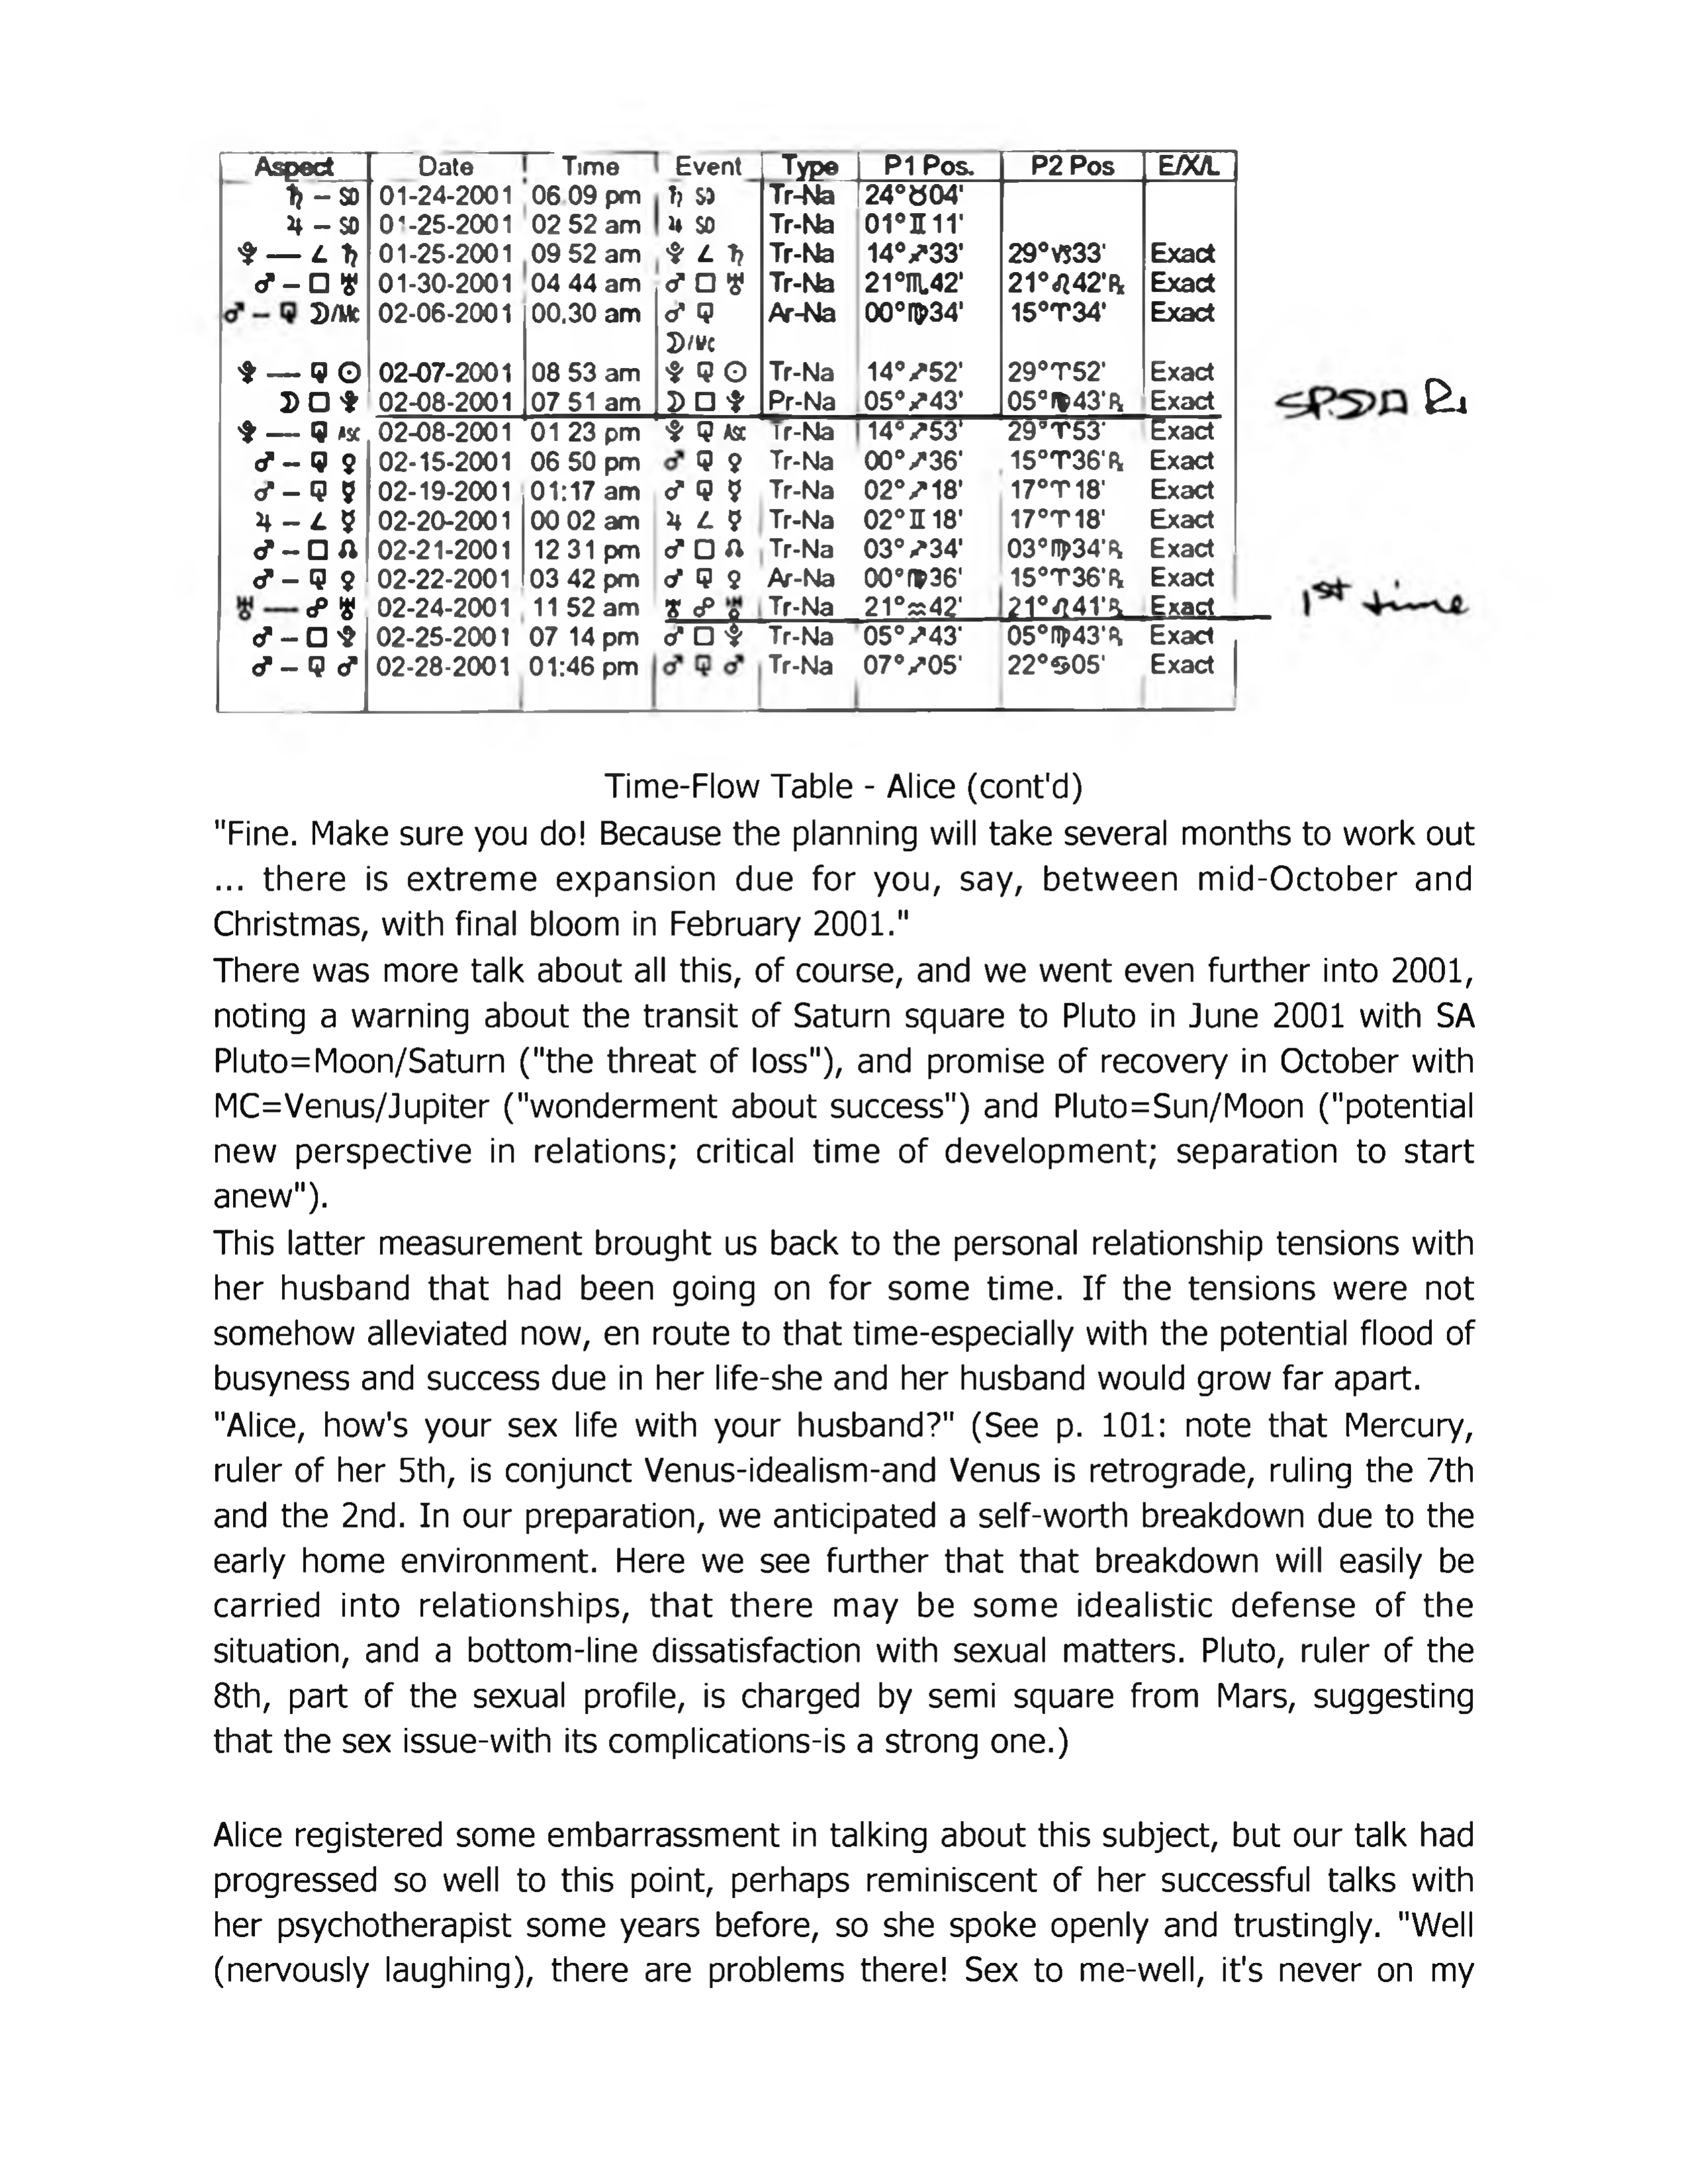 Aspect Date Time Event Type P1 Pos. P2 Pos E/X/L
♄ – SD 01-24-2001 06.09 pm ♄ SD Tr-Na 24°♉04'
♃ – SD 01-25-2001 02 52 am ♃ SD Tr-Na 01°♊11'
♇ — ∠ ♄ 01-25-2001 09 52 am ♇ ∠ ♄ Tr-Na 14°♐33' 29°♑33' Exact
♂ – □ ♅ 01-30-2001 04 44 am ♂ □ ♅ Tr-Na 21°♏42' 21°♌42'℞ Exact
♂ – ⚼ ☽/Mc 02-06-2001 00.30 am ♂ ⚼ Ar-Na 00°♍34' 15°♈34' Exact
☽/Mc
♇ — ⚼ ☉ 02-07-2001 08 53 am ♇ ⚼ ☉ Tr-Na 14°♐52' 29°♈52' Exact
☽ □ ♇ 02-08-2001 07 51 am ☽ □ ♇ Pr-Na 05°♐43' 05°♍43'℞ Exact
♇ — ⚼ Asc 02-08-2001 01 23 pm ♇ ⚼ Asc Tr-Na 14°♐53' 29°♈53' Exact
♂ – ⚼ ♀ 02-15-2001 06 50 pm ♂ ⚼ ♀ Tr-Na 00°♐36' 15°♈36'℞ Exact
♂ – ⚼ ☿ 02-19-2001 01:17 am ♂ ⚼ ☿ Tr-Na 02°♐18' 17°♈18' Exact
♃ – ∠ ☿ 02-20-2001 00 02 am ♃ ∠ ☿ Tr-Na 02°♊18' 17°♈18' Exact
♂ – □ ☊ 02-21-2001 12 31 pm ♂ □ ☊ Tr-Na 03°♐34' 03°♍34'℞ Exact
♂ – ⚼ ♀ 02-22-2001 03 42 pm ♂ ⚼ ♀ Ar-Na 00°♍36' 15°♈36'℞ Exact
♅ — ☍ ♅ 02-24-2001 11 52 am ♅ ☍ ♅ Tr-Na 21°♒42' 21°♌41'℞ Exact 1st time
♂ – □ ♇ 02-25-2001 07 14 pm ♂ □ ♇ Tr-Na 05°♐43' 05°♍43'℞ Exact
♂ – ⚼ ♂ 02-28-2001 01:46 pm ♂ ⚼ ♂ Tr-Na 07°♐05' 22°♋05' Exact
Time-Flow Table - Alice (cont'd)
"Fine. Make sure you do! Because the planning will take several months to work out
... there is extreme expansion due for you, say, between mid-October and
Christmas, with final bloom in February 2001."
There was more talk about all this, of course, and we went even further into 2001,
noting a warning about the transit of Saturn square to Pluto in June 2001 with SA
Pluto=Moon/Saturn ("the threat of loss"), and promise of recovery in October with
MC=Venus/Jupiter ("wonderment about success") and Pluto=Sun/Moon ("potential
new perspective in relations; critical time of development; separation to start
anew").
This latter measurement brought us back to the personal relationship tensions with
her husband that had been going on for some time. If the tensions were not
somehow alleviated now, en route to that time-especially with the potential flood of
busyness and success due in her life-she and her husband would grow far apart.
"Alice, how's your sex life with your husband?" (See p. 101: note that Mercury,
ruler of her 5th, is conjunct Venus-idealism-and Venus is retrograde, ruling the 7th
and the 2nd. In our preparation, we anticipated a self-worth breakdown due to the
early home environment. Here we see further that that breakdown will easily be
carried into relationships, that there may be some idealistic defense of the
situation, and a bottom-line dissatisfaction with sexual matters. Pluto, ruler of the
8th, part of the sexual profile, is charged by semi square from Mars, suggesting
that the sex issue-with its complications-is a strong one.)
Alice registered some embarrassment in talking about this subject, but our talk had
progressed so well to this point, perhaps reminiscent of her successful talks with
her psychotherapist some years before, so she spoke openly and trustingly. "Well
(nervously laughing), there are problems there! Sex to me-well, it's never on my